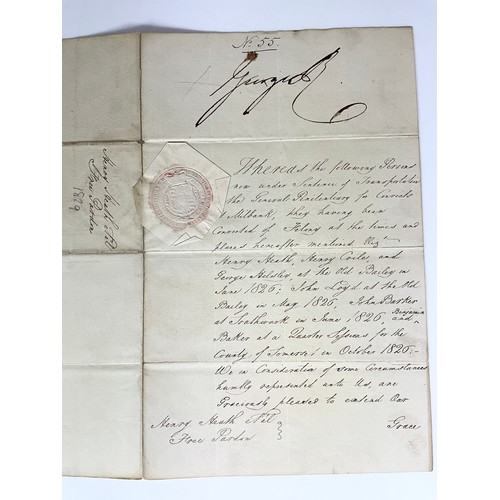 No. 55.
George R
Whereas the following Persons
now under Sentence of Transportation
the General Penitentiary for Convicts
Milbank, they having been
Convicted of Felony at the times and
places hereafter mentioned Vizt
Henry Heath, Henry Coles, and
George at the Old Bailey in
June 1826; John Loyd at the Old
Bailey in May 1826, John Barker
at Southwark in June 1826, and Benjamin
Baker at a Quarter Sessions for the
County of Somerset in October 1826;
We in Consideration of some Circumstances
humbly represented unto Us, are
Graciously pleased to extend Our
Grace
Henry Heath
Free Pardon
Henry Heath
Free Pardon
1829